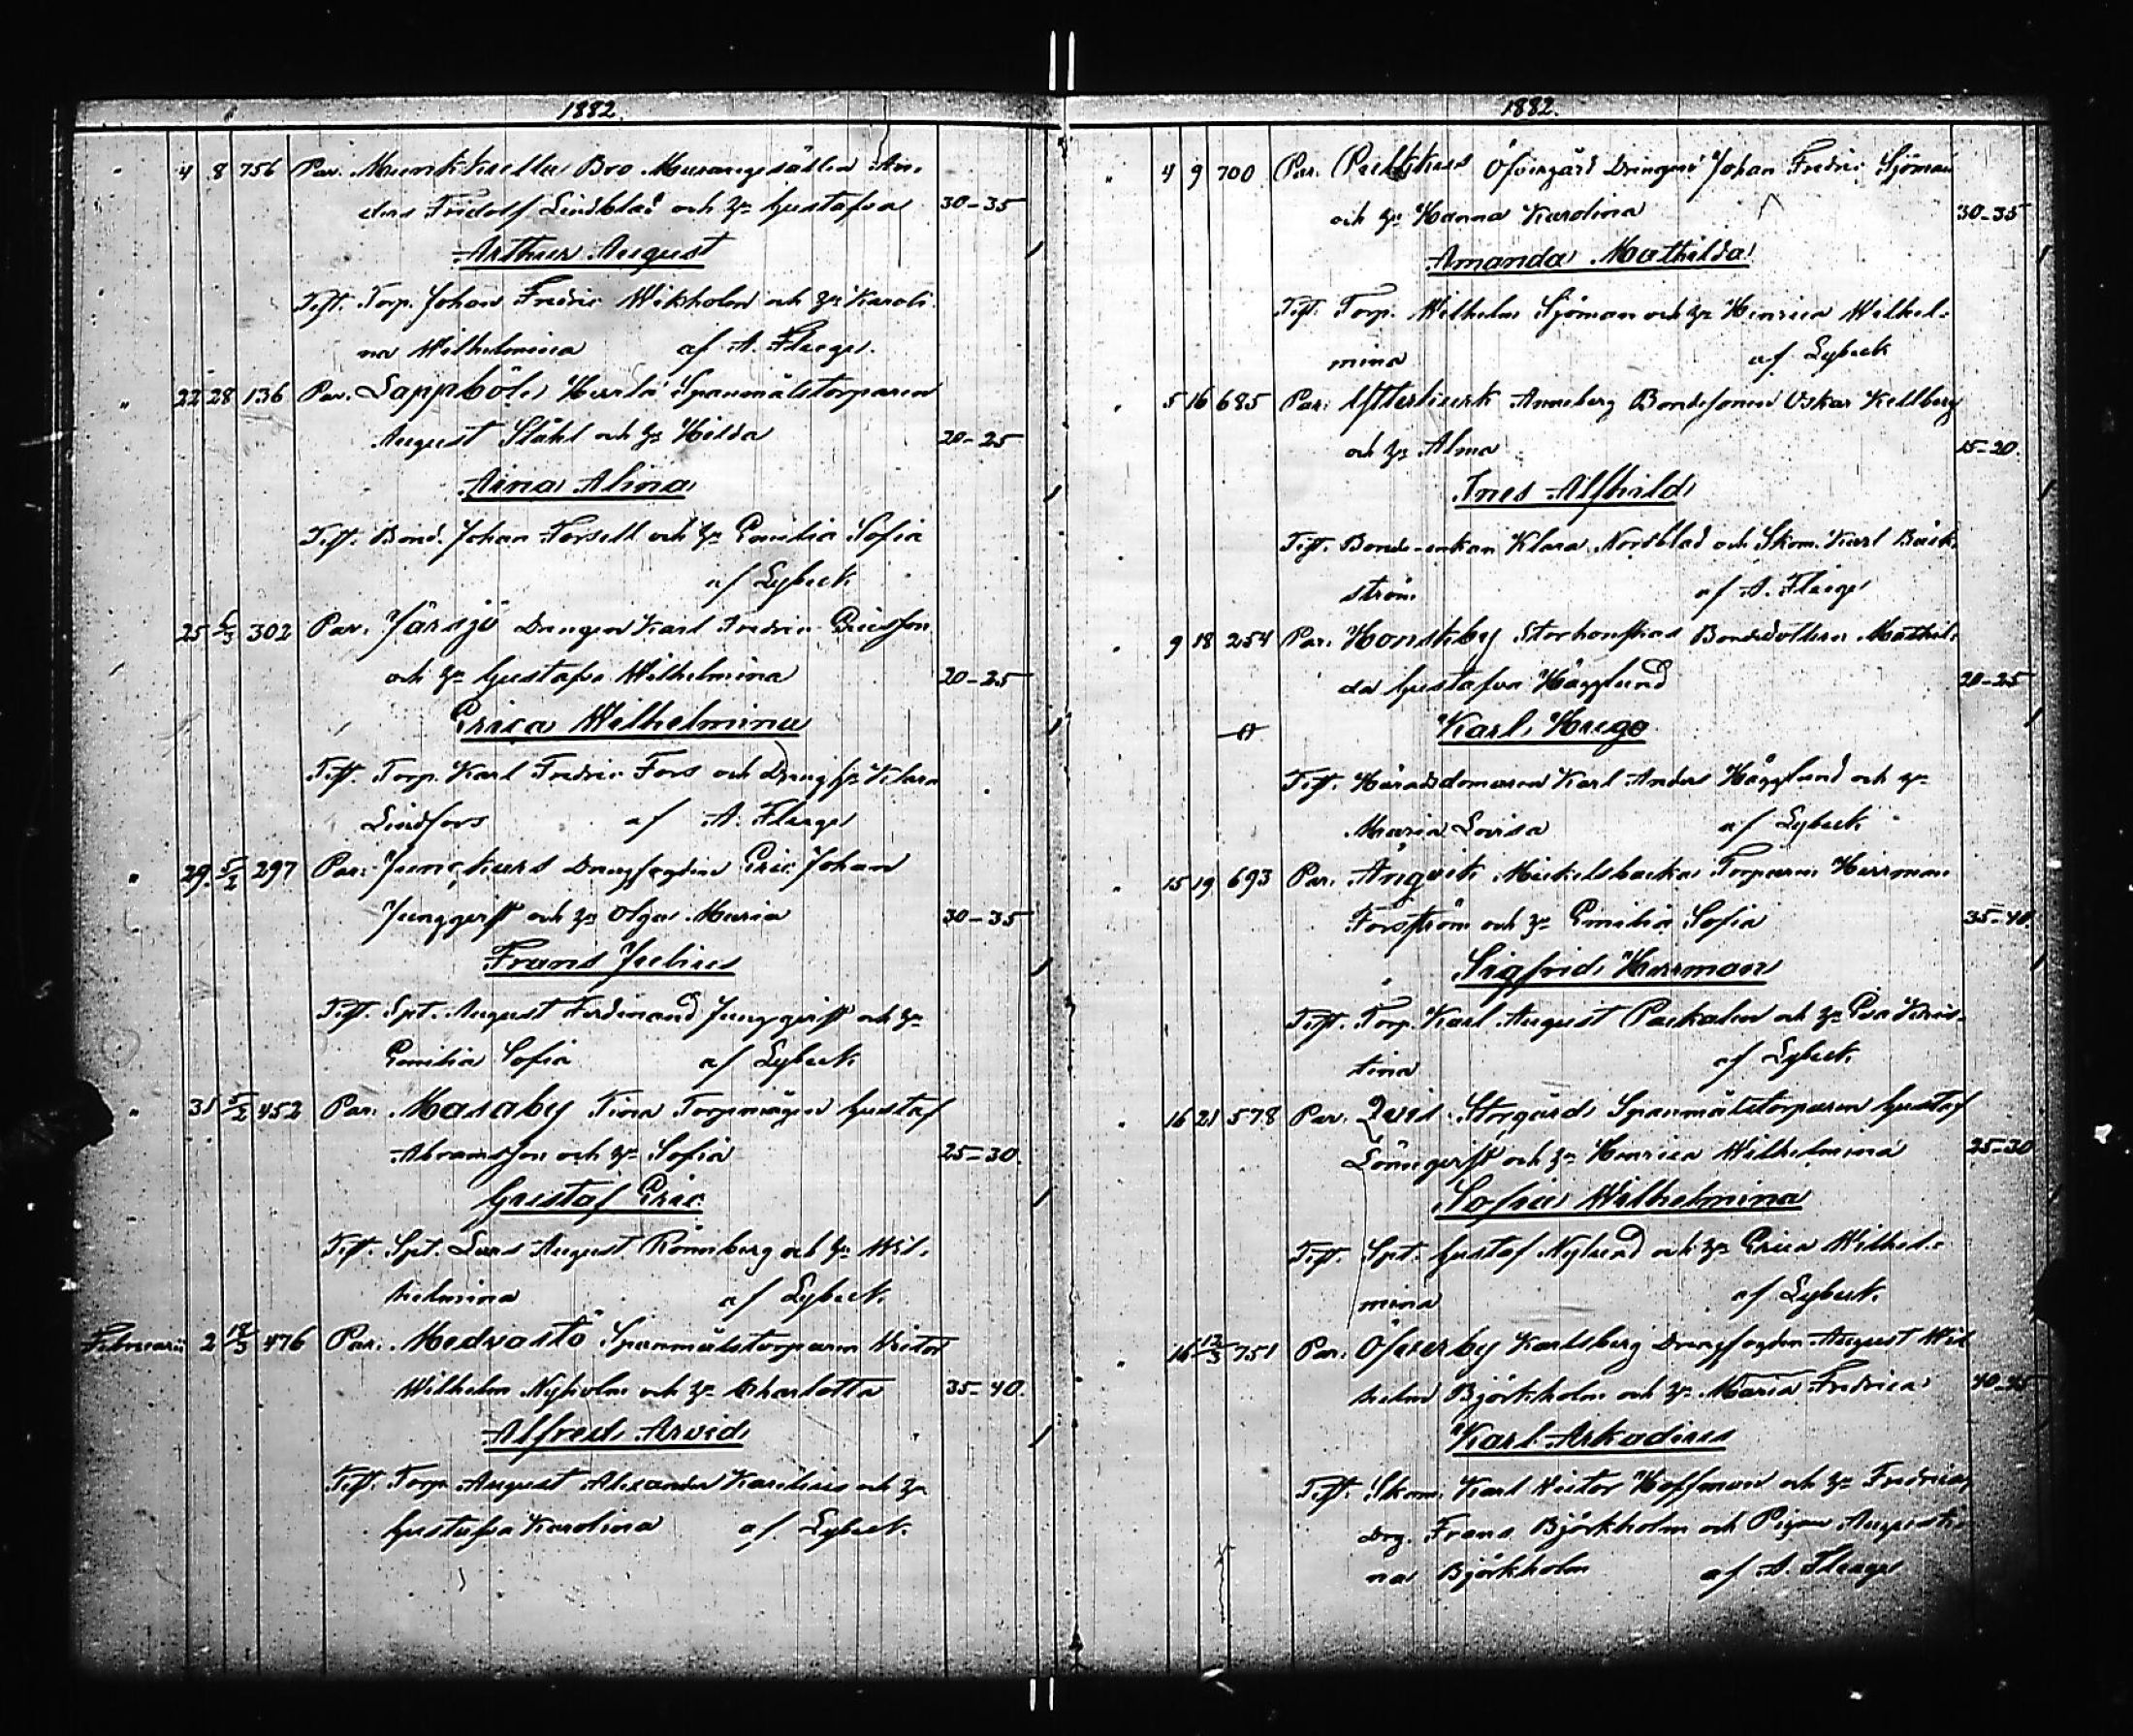 1882.
" 4 8 756 Par. Munkkulla Bro Muraregesällen An-
ders Fridolf Lindblad och h. Gustafva 30-35
Arthur August
Test. Torp. Johan Fredric Wikholm och h. Karoli-
na Wilhelmina af A. Fleege.
" 22 28 136 Par. Lappböle Herrla Spanmålstorparen
August Ståhl och h. Hilda 20-25
Aina Alina
Test. Bond. Johan Forsell och h. Emilia Sofia
af Lybeck.
25 5/3 302 Par. Järsjö Drengen Karl Fredric Ericsson
och h. Gustafva Wilhelmina 20-25
Erica Wilhelmina
Test. Torp. Karl Fredric Fors och Drengh. Klara
Lindfors af A. Fleege
" 29 5/2 297 Par. Junckars Drengfogden Eric Johan
Junggrist och h. Olga Maria 30-35
Frans Julius
Test. Spt. August Ferdinand Junggrist och h.
Emilia Sofia af Lybeck.
" 31 5/2 452 Par. Masaby Tina Torpmågen Gustaf
Abramsson och h. Sofia 25-30.
Gustaf Eric
Test. Spt. Lars August Rönnberg och h. Wil-
helmina af Lybeck.
Februarii 2 18/3 476 Par. Medvastö Spanmålstorparen Victor
Wilhelm Nyholm och h. Charlotta 35-40.
Alfred Arvid
Test. Torp. August Alexander Karelius och h.
Gustafva Karolina af Lybeck.
1882.
" 4 9 700 Par. Öfvergård Drengen Johan Fredric Sjöman
och h. Hanna Karolina 30-35
Amanda Mathilda
Test. Torp. Wilhelm Sjöman och h. Henrica Wilhel-
mina af Lybeck
" 5 16 685 Par. Anneberg Bondesonen Oskar Kellberg
och h. Alma 15-20.
Ines Alfhild
Test. Bonde-enkan Klara Nordblad och Skom. Karl Bäck-
ström af A. Fleege
" 9 18 254 Par. Honskby Storhonskas Bondedottren Mathil-
da Gustafva Hägglund 20-25
Karl Hugo
Test. Häradsdomaren Karl Anders Hägglund och h.
Maria Lovisa af Lybeck.
" 15 19 693 Par. Ängvik Mickelsbacka Torparen Herrman
Forsström och h. Emilia Sofia 35-40.
Sigfrid Herrman
Test. Torp. Karl August Packalen och h. Eva Kris-
tina af Lybeck.
" 16 21 578 Par. Qvis Storgård Spanmålstorparen Gustaf
Lönngrist och h. Henrica Wilhelmina 25-30
Sofia Wilhelmina
Test. Spt. Gustaf Nylund och h. Erica Wilhel-
mina af Lybeck.
" 16 12/3 751 Par. Öfverby Karlsberg Drengfogden August Wil
helm Björkholm och h. Maria Fredrica 40-45
Karl Arkadius
Test. Skom. Karl Victor Hoffman och h. Fredrica,
Drg. Frans Björkholm och Pigan Augusti-
na Björkholm af A. Fleege